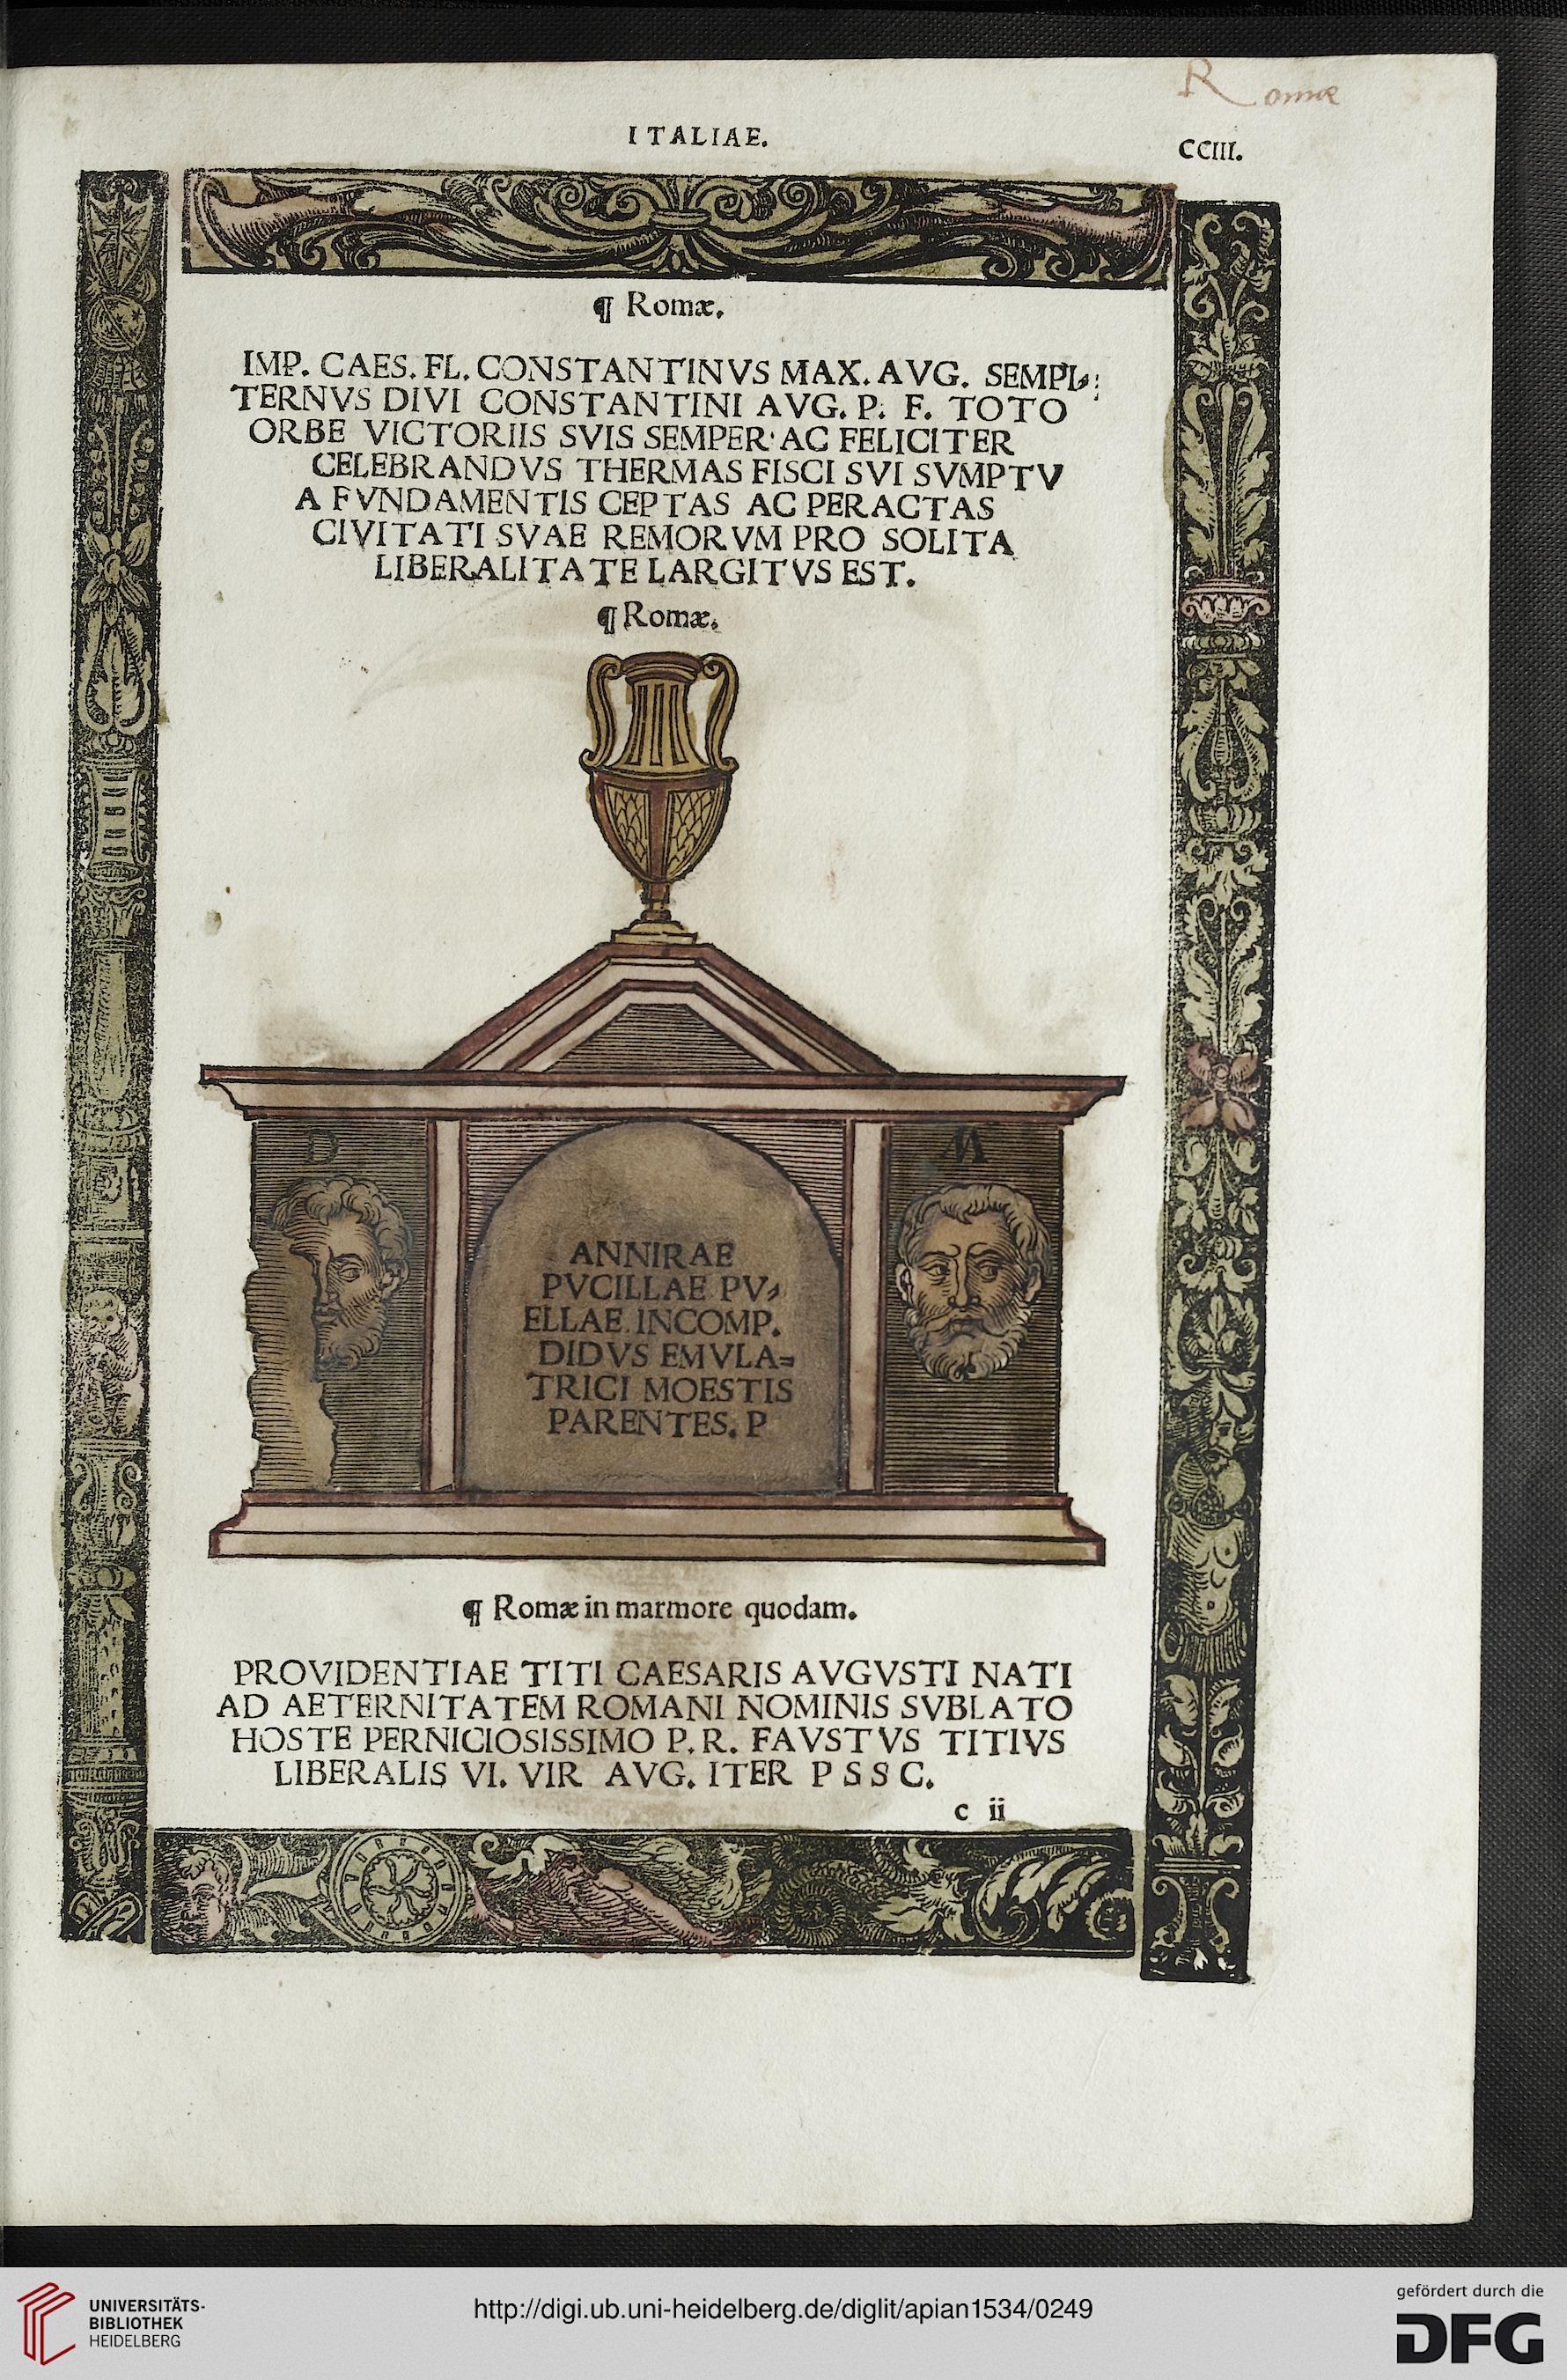 Romæ
ITALIAE.
CCIII.
¶ Romæ.
IMP. CAES. FL. CONSTANTINVS MAX. AVG. SEMPI⸗
TERNVS DIVI CONSTANTINI AVG. P. F. TOTO
ORBE VICTORIIS SVIS SEMPER AC FELICITER
CELEBRANDVS THERMAS FISCI SVI SVMPTV
A FVNDAMENTIS CEPTAS AC PERACTAS
CIVITATI SVAE REMORVM PRO SOLITA
LIBERALITATE LARGITVS EST.
¶ Romæ.
D M
ANNIRAE
PVCILLAE PV⸗
ELLAE INCOMP.
DIDVS EMVLA⸗
TRICI MOESTIS
PARENTES. P
¶ Romæ in marmore quodam.
PROVIDENTIAE TITI CAESARIS AVGVSTI NATI
AD AETERNITATEM ROMANI NOMINIS SVBLATO
HOSTE PERNICIOSISSIMO P. R. FAVSTVS TITIVS
LIBERALIS VI. VIR AVG. ITER P S S C.
c ii
UNIVERSITÄTS-
BIBLIOTHEK
HEIDELBERG
http://digi.ub.uni-heidelberg.de/diglit/apian1534/0249
gefördert durch die
DFG